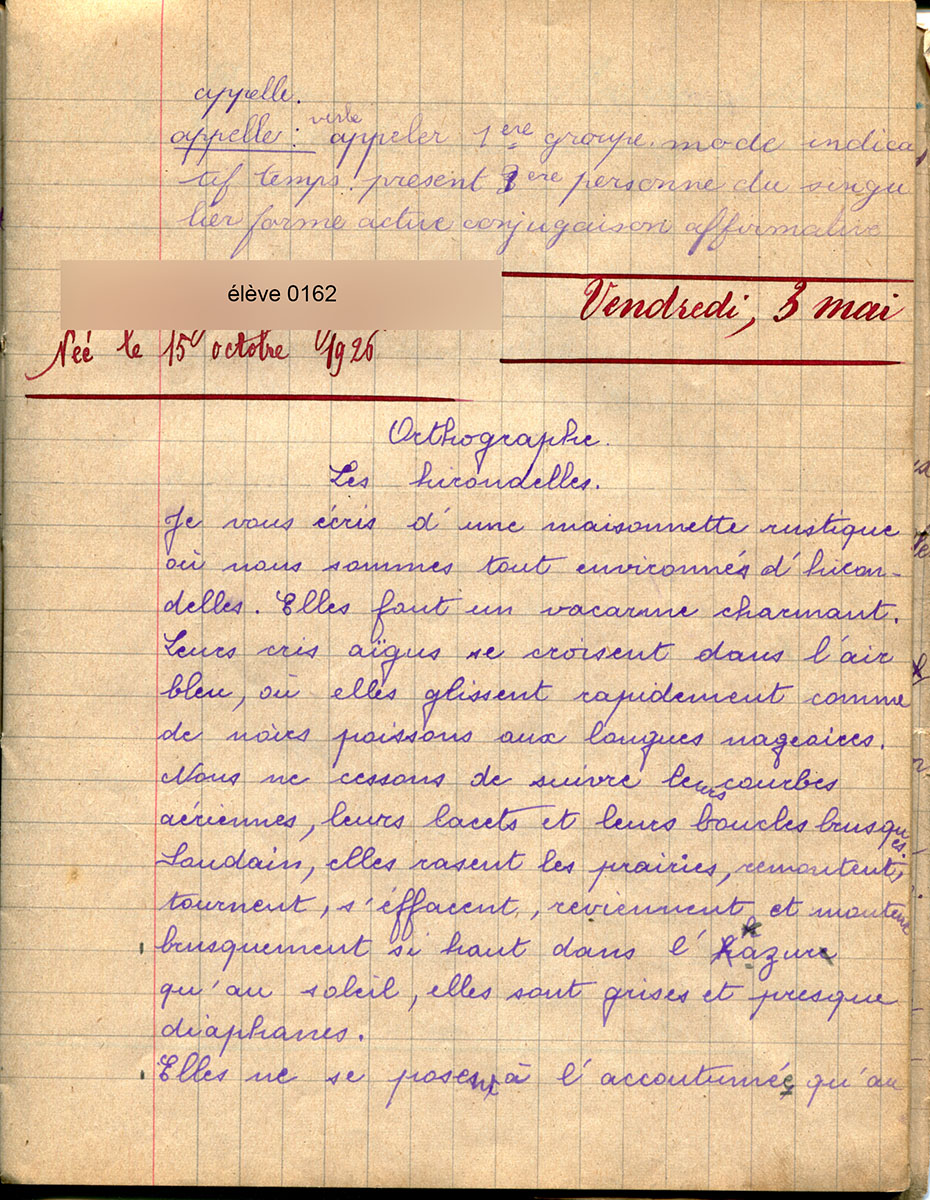 appelle.
appelle : verbe appeler 1ère groupe. mode indica
tif temps. présent 3ère personne du singu
lier forme active conjugaison affirmative
élève 0162
Vendredi, 3 mai
Néé le 15 octobre 1926
Orthographe.
Les hirondelles.
Je vous écris d'une maisonnette rustique
où nous sommes tout environnés d'hiron-
delles. Elles font un vacarme charmant.
Leurs cris aïgus se croisent dans l'air
bleu, où elles glissent rapidement comme
de noirs poissons aux longues nageoires.
Nous ne cessons de suivre leurs courbes
aériennes, leurs lacets et leurs boucles brusques.
Soudain, elles rasent les prairies, remontent,
tournent, s'éffacent, reviennent et montent
brusquement si haut dans l'azure
qu'au soleil, elles sont grises et presque
diaphanes.
Elles ne se posent à l'accoutumée qu'au